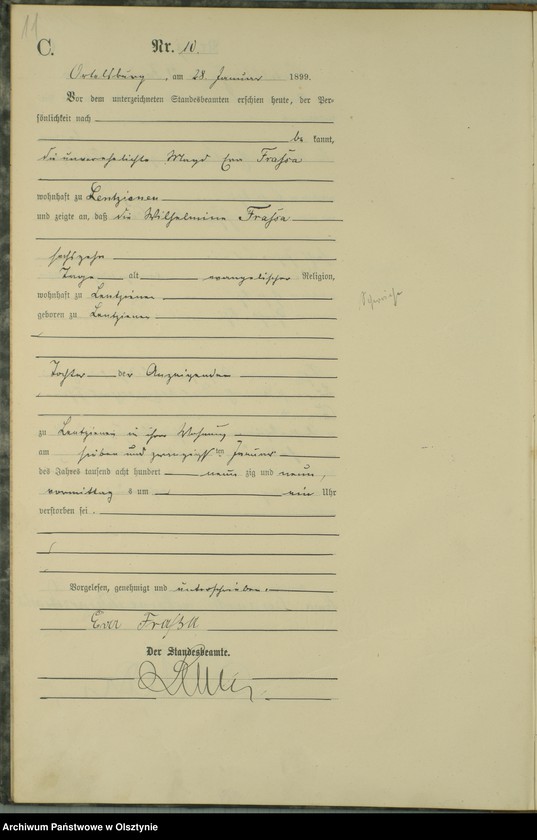 11
C.
Nr. 10.
Ortelsburg, am 28. Januar 1899.
Vor dem unterzeichneten Standesbeamten erschien heute, der Per-
sönlichkeit nach
be kannt,
die unverehelichte Magd Eva Fraßa
wohnhaft zu Lentzienen
und zeigte an, daß die Wilhelmine Fraßa
sechszehn
Tage alt evangelischer Religion,
wohnhaft zu Lentzienen
geboren zu Lentzienen
Tochter der Anzeigenden
zu Lentzienen in ihrer Wohnung
am sieben und zwanzigsten Januar
des Jahres tausend acht hundert neun zig und neun,
vormittag s um ein Uhr
verstorben sei.
Vorgelesen, genehmigt und unterschrieben.
Eva Fraßa
Der Standesbeamte.
Archiwum Państwowe w Olsztynie